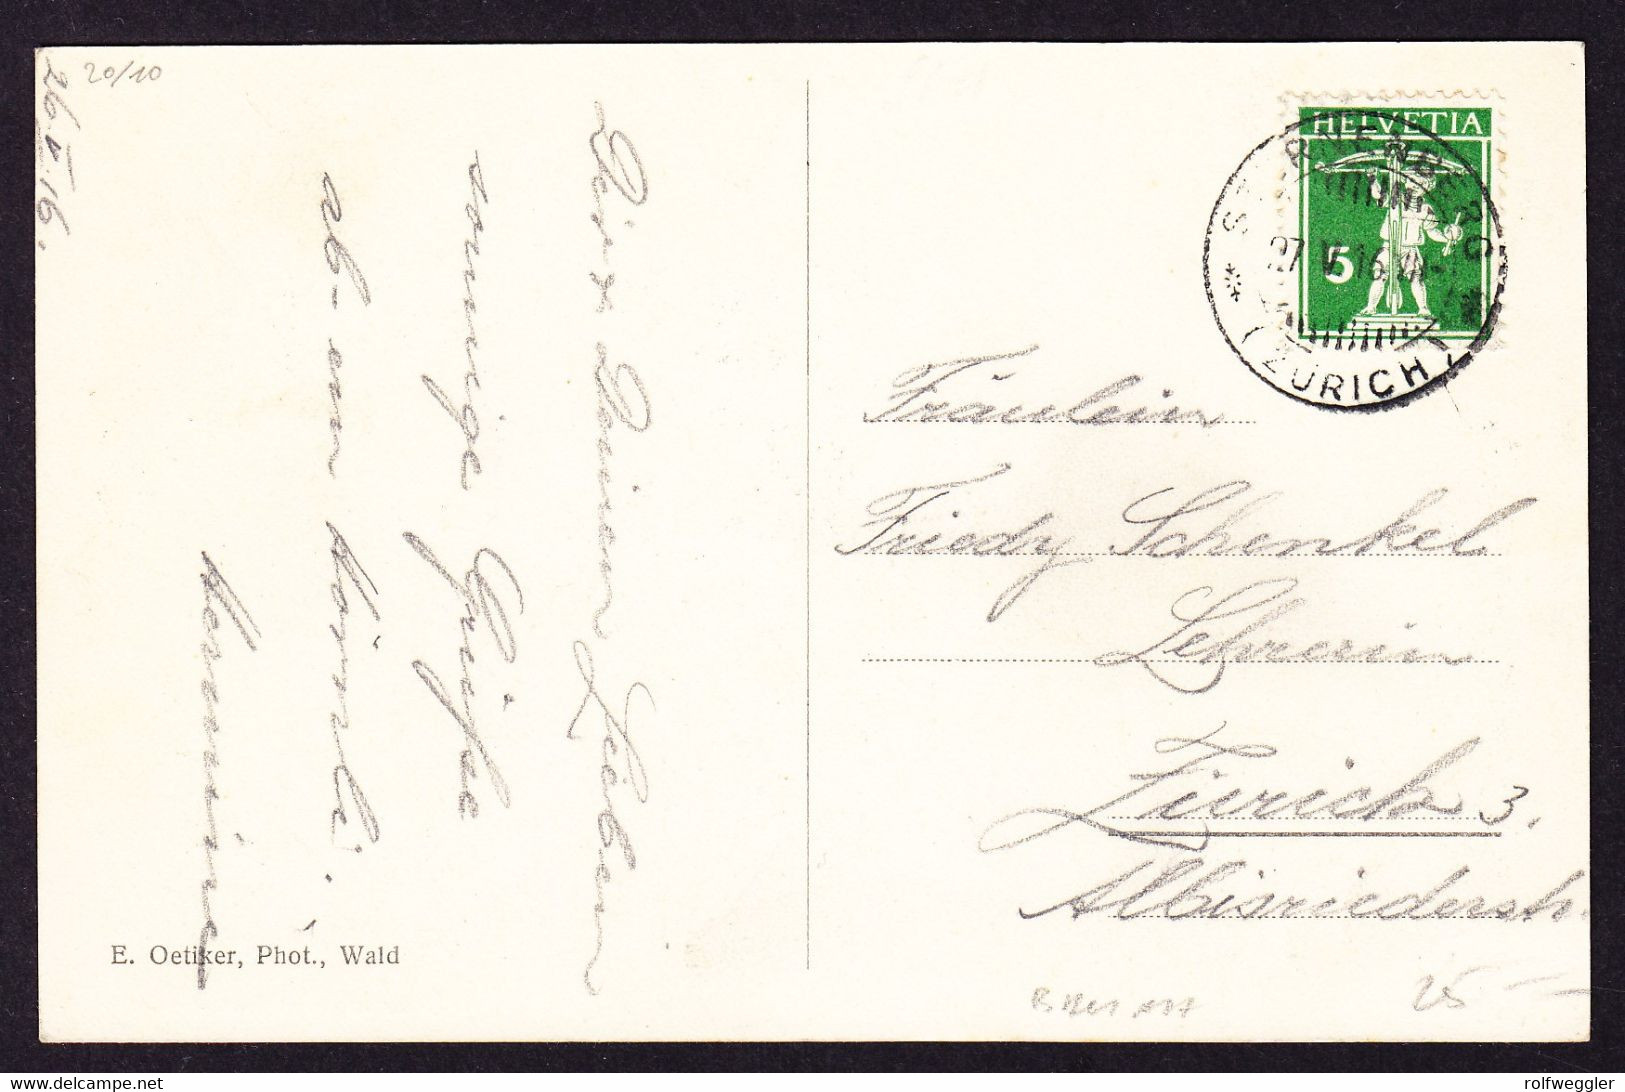 20/10
26.V.16.
Dir u. Deinen Lieben
sonnige Grüße
ab-em Hörnli.
Hermine
E. Oetiker, Phot., Wald
HELVETIA
5
STERNENBERG
27.V.16.VII-
(ZÜRICH)
Fräulein
Friedy Schenkel
Lehrerin
Zürich 3.
Albisriederstr.
25 —
www.delcampe.net
rolfweggler